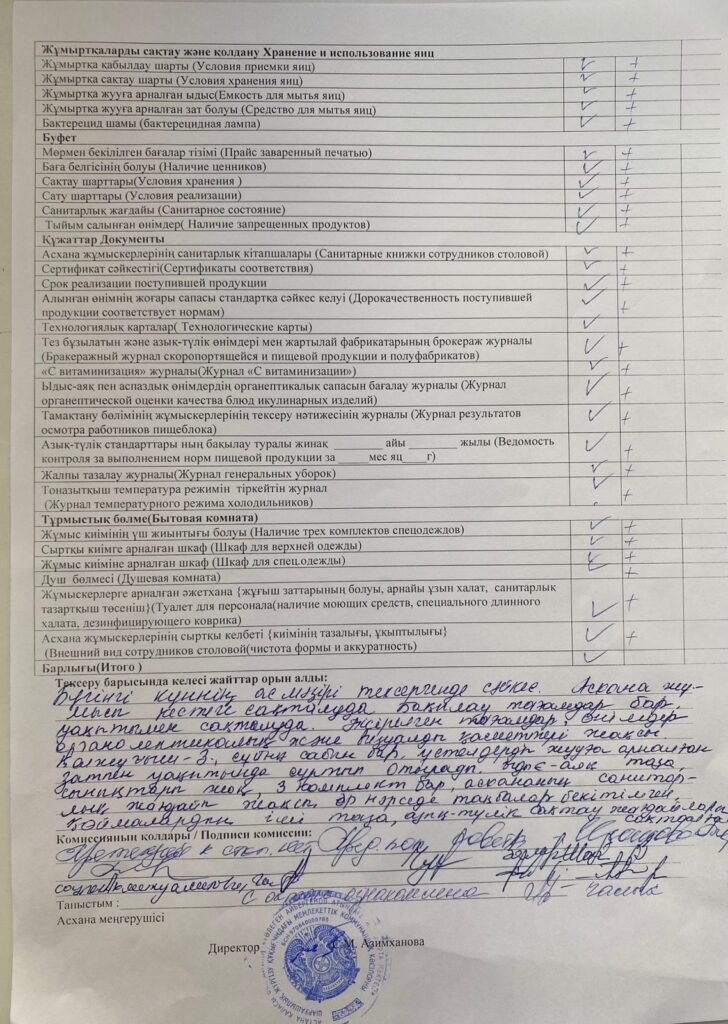 Жұмыртқаларды сақтау және қолдану Хранение и использование яиц
Жұмыртқа қабылдау шарты (Условия приемки яиц) ✓ +
Жұмыртқа сақтау шарты (Условия хранения яиц) ✓ +
Жұмыртқа жууға арналған ыдыс(Емкость для мытья яиц) ✓ +
Жұмыртқа жууға арналған зат болуы (Средство для мытья яиц) ✓ +
Бактерецид шамы (бактерецидная лампа) ✓ +
Буфет
Мөрмен бекілілген бағалар тізімі (Прайс заваренный печатью) ✓ +
Баға белгісінің болуы (Наличие ценников) ✓ +
Сақтау шарттары(Условия хранения ) ✓ +
Сату шарттары (Условия реализации) ✓ +
Санитарлық жағдайы (Санитарное состояние) ✓ +
Тыйым салынған өнімдер( Наличие запрещенных продуктов) ✓ +
Құжаттар Документы
Асхана жұмыскерлерінің санитарлық кітапшалары (Санитарные книжки сотрудников столовой) ✓ +
Сертификат сәйкестігі(Сертификаты соответствия) ✓ +
Срок реализации поступившей продукции ✓ +
Алынған өнімнің жоғары сапасы стандартка сәйкес келуі (Дорокачественность поступившей
продукции соответствует нормам) ✓ +
Технологиялық карталар( Технологические карты) ✓ +
Тез бұзылатын және азық-түлік өнімдері мен жартылай фабрикатарының брокераж журналы
(Бракеражный журнал скоропортящейся и пищевой продукции и полуфабрикатов) ✓ +
«С витаминизация» журналы(Журнал «С витаминизации») ✓ +
Ыдыс-аяқ пен аспаздық өнімдердің органептикалық сапасын бағалау журналы (Журнал
органептической оценки качества блюд икулинарных изделий) ✓ +
Тамақтану бөлімінің жұмыскерлерінің тексеру нәтижесінің журналы (Журнал результатов
осмотра работников пищеблока) ✓ +
Азық-түлік стандарттары ның бақылау туралы жинақ ________ айы ________ жылы (Ведомость
контроля за выполнением норм пищевой продукции за _____мес яц____г) ✓ +
Жалпы тазалау журналы(Журнал генеральных уборок) ✓ +
Тоназытқыш температура режимін тіркейтін журнал
(Журнал температурного режима холодильников) +
Тұрмыстық бөлме(Бытовая комната)
Жұмыс киімінің үш жиынтығы болуы (Наличие трех комплектов спецодеждов) ✓ +
Сыртқы киімге арналған шкаф (Шкаф для верхней одежды) ✓ +
Жұмыс киіміне арналған шкаф (Шкаф для спец.одежды) ✓ +
Душ бөлмесі (Душевая комната) +
Жұмыскерлерге арналған әжетхана {жұғыш заттарының болуы, арнайы ұзын халат, санитарлық
тазартқыш төсеніш}(Туалет для персонала(наличие моющих средств, специального длинного
халата, дезинфицирующего коврика) ✓ +
Асхана жұмыскерлерінің сыртқы келбеті {киімінің тазалығы, ұқыптылығы}
(Внешний вид сотрудников столовой(чистота формы и аккуратность) ✓ +
Барлығы(Итого )
Тексеру барысында келесі жайттар орын алды:
Бүгінгі күннің ас мәзірі тексергенде сәйкес. Асхана жұ-
мысы кестеге сақталуда. Бақылау тағамдар бар,
уақытымен сақталуда. Жерілген тағамдар, өнімдер
органолептикалық және визуалды қасиеттері жақсы.
Қол жуғыш-3, сұйық сабын бар, үстелдерді жууға арналған
затпен уақытында сүртіп отырады. Ыдыс-аяқ таза,
сынықтары жоқ, 3 комплект бар, асхананың санитар-
лық жағдайы жақсы, әр нәрседе таңбалар бекітілген.
Қоймалардың іші таза, азық-түлік сақтау жағдайлары
сақталған
Комиссияның қолдары / Подписи комиссии:
Таныстым : ознакомлена
Асхана меңгерушісі
Директор С.М. Азимханова